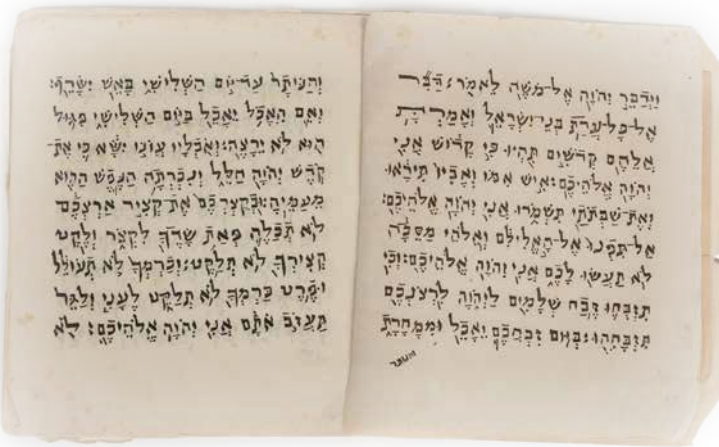 וַיְדַבֵּר יְהוָה אֶל־מֹשֶׁה לֵּאמֹר׃ דַּבֵּר
אֶל־כָּל־עֲדַת בְּנֵי־יִשְׂרָאֵל וְאָמַרְתָּ
אֲלֵהֶם קְדֹשִׁים תִּהְיוּ כִּי קָדוֹשׁ אֲנִי
יְהוָה אֱלֹהֵיכֶם׃ אִישׁ אִמּוֹ וְאָבִיו תִּירָאוּ
וְאֶת־שַׁבְּתֹתַי תִּשְׁמֹרוּ אֲנִי יְהוָה אֱלֹהֵיכֶם׃
אַל־תִּפְנוּ אֶל־הָאֱלִילִם וֵאלֹהֵי מַסֵּכָה
לֹא תַעֲשׂוּ לָכֶם אֲנִי יְהוָה אֱלֹהֵיכֶם׃ וְכִי
תִזְבְּחוּ זֶבַח שְׁלָמִים לַיהוָה לִרְצֹנְכֶם
תִּזְבָּחֻהוּ׃ בְּיוֹם זִבְחֲכֶם יֵאָכֵל וּמִמָּחֳרָת
והנותר
וְהַנּוֹתָר עַד־יוֹם הַשְּׁלִישִׁי בָּאֵשׁ יִשָּׂרֵף׃
וְאִם הֵאָכֹל יֵאָכֵל בַּיּוֹם הַשְּׁלִישִׁי פִּגּוּל
הוּא לֹא יֵרָצֶה׃ וְאֹכְלָיו עֲוֺנוֹ יִשָּׂא כִּי אֶת־
קֹדֶשׁ יְהוָה חִלֵּל וְנִכְרְתָה הַנֶּפֶשׁ הַהִוא
מֵעַמֶּיהָ׃ וּבְקֻצְרְכֶם אֶת־קְצִיר אַרְצְכֶם
לֹא תְכַלֶּה פְּאַת שָׂדְךָ לִקְצֹר וְלֶקֶט
קְצִירְךָ לֹא תְלַקֵּט׃ וְכַרְמְךָ לֹא תְעוֹלֵל
וּפֶרֶט כַּרְמְךָ לֹא תְלַקֵּט לֶעָנִי וְלַגֵּר
תַּעֲזֹב אֹתָם אֲנִי יְהוָה אֱלֹהֵיכֶם׃ לֹא